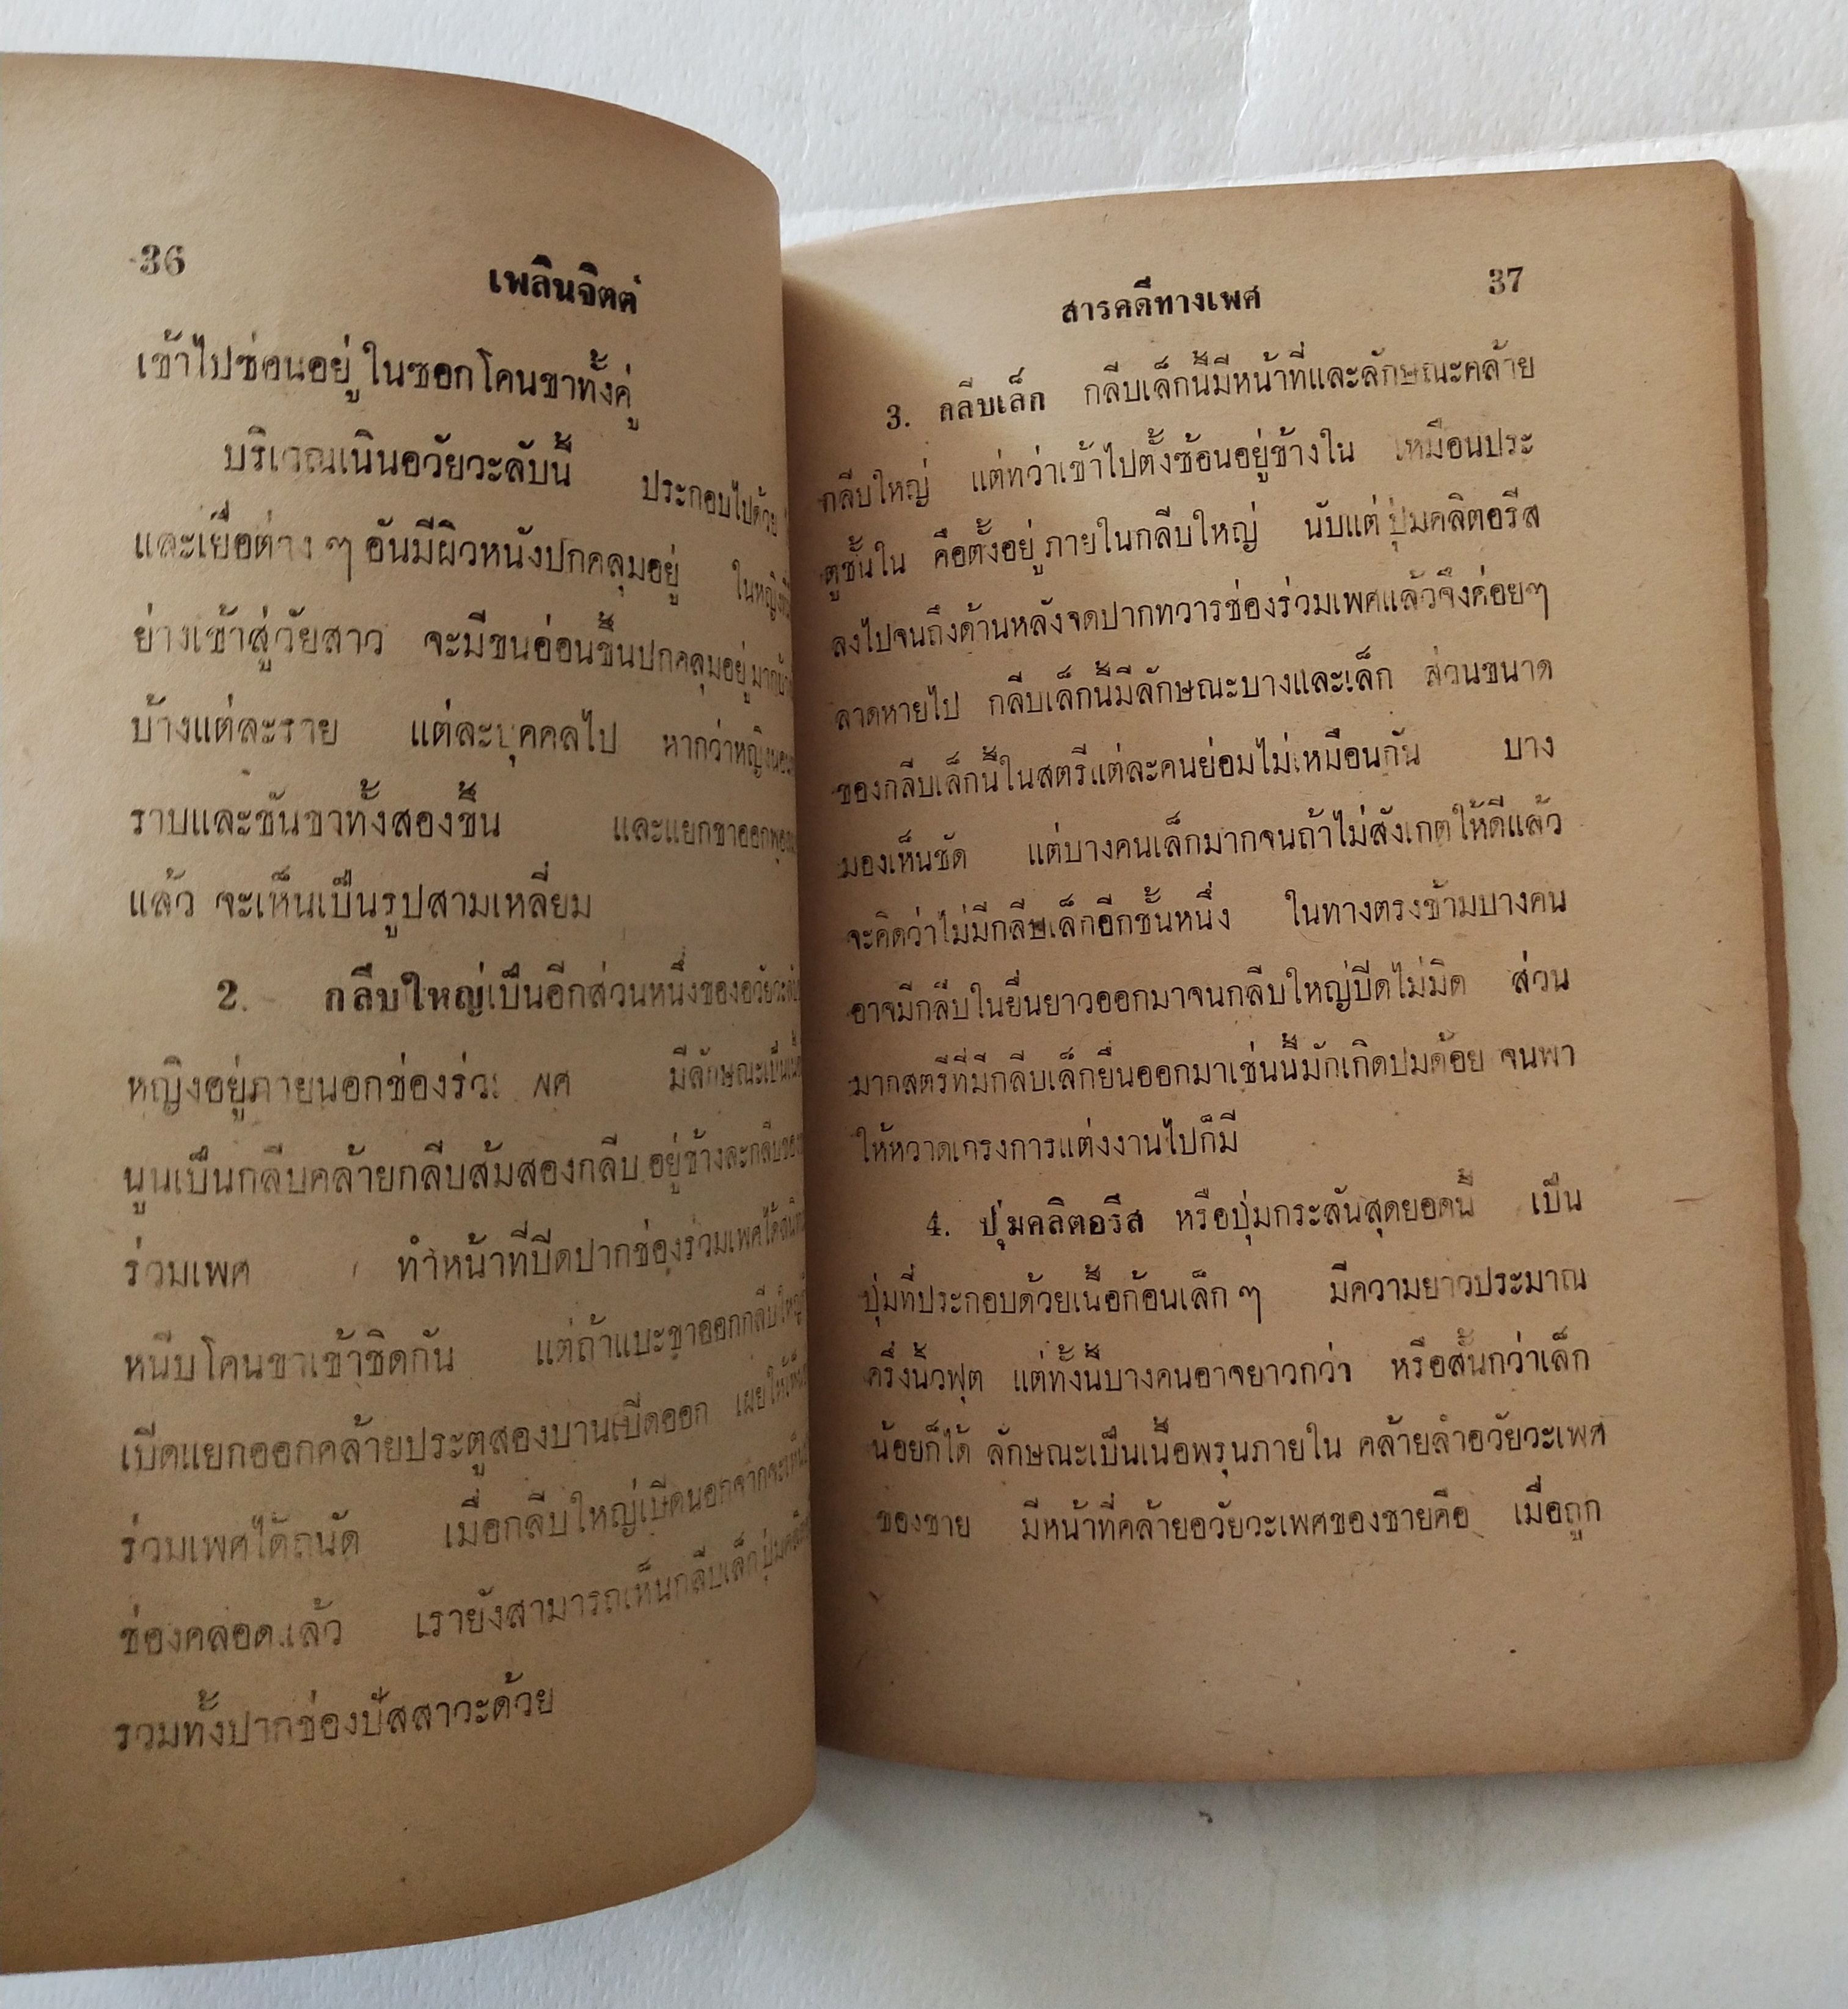 36
เพลินจิตต์
เข้าไปซ่อนอยู่ในซอกโคนขาทั้งคู่
บริเวณเนินอวัยวะลับนี้ ประกอบไปด้วย
และเยื่อต่าง ๆ อันมีผิวหนังปกคลุมอยู่
ย่างเข้าสู่วัยสาว จะมีขนอ่อนขึ้นปกคลุมอยู่มากบ้าง
บ้างแต่ละราย แต่ละบุคคลไป หากว่าหญิงนอน
ราบและชันขาทั้งสองขึ้น และแยกขาออก
แล้ว จะเห็นเป็นรูปสามเหลี่ยม
2. กลีบใหญ่เป็นอีกส่วนหนึ่งของอวัยวะ
หญิงอยู่ภายนอกช่องร่วมเพศ มีลักษณะเป็นเนื้อ
นูนเป็นกลีบคล้ายกลีบส้มสองกลีบ อยู่ข้างละกลีบของ
ร่วมเพศ ทำหน้าที่ปิดปากช่องร่วมเพศได้
หนีบโคนขาเข้าชิดกัน แต่ถ้าแบะขาออกกลีบใหญ่
เปิดแยกออกคล้ายประตูสองบานเปิดออก เผยให้เห็น
ร่วมเพศได้ถนัด เมื่อกลีบใหญ่เปิดนอกจากจะเห็น
ช่องคลอดแล้ว เรายังสามารถเห็นกลีบเล็ก
รวมทั้งปากช่องปัสสาวะด้วย
สารคดีทางเพศ
37
3. กลีบเล็ก กลีบเล็กนี้มีหน้าที่และลักษณะคล้าย
กลีบใหญ่ แต่ทว่าเข้าไปตั้งซ้อนอยู่ข้างใน เหมือนประ
ตูชั้นใน คือตั้งอยู่ภายในกลีบใหญ่ นับแต่ปุ่มคลิตอรีส
ลงไปจนถึงด้านหลังจดปากทวารช่องร่วมเพศแล้วจึงค่อยๆ
ลาดหายไป กลีบเล็กนี้มีลักษณะบางและเล็ก ส่วนขนาด
ของกลีบเล็กนี้ในสตรีแต่ละคนย่อมไม่เหมือนกัน บาง
มองเห็นชัด แต่บางคนเล็กมากจนถ้าไม่สังเกตให้ดีแล้ว
จะคิดว่าไม่มีกลีบเล็กอีกชั้นหนึ่ง ในทางตรงข้ามบางคน
อาจมีกลีบในยื่นยาวออกมาจนกลีบใหญ่ปิดไม่มิด ส่วน
มากสตรีที่มีกลีบเล็กยื่นออกมาเช่นนี้มักเกิดปมด้อย จนพา
ให้หวาดเกรงการแต่งงานไปก็มี
4. ปุ่มคลิตอรีส หรือปุ่มกระสันสุดยอดนี้ เป็น
ปุ่มที่ประกอบด้วยเนื้อก้อนเล็ก ๆ มีความยาวประมาณ
ครึ่งนิ้วฟุต แต่ทั้งนี้บางคนอาจยาวกว่า หรือสั้นกว่าเล็ก
น้อยก็ได้ ลักษณะเป็นเนื้อพรุนภายใน คล้ายลำอวัยวะเพศ
ของชาย มีหน้าที่คล้ายอวัยวะเพศของชายคือ เมื่อถูก